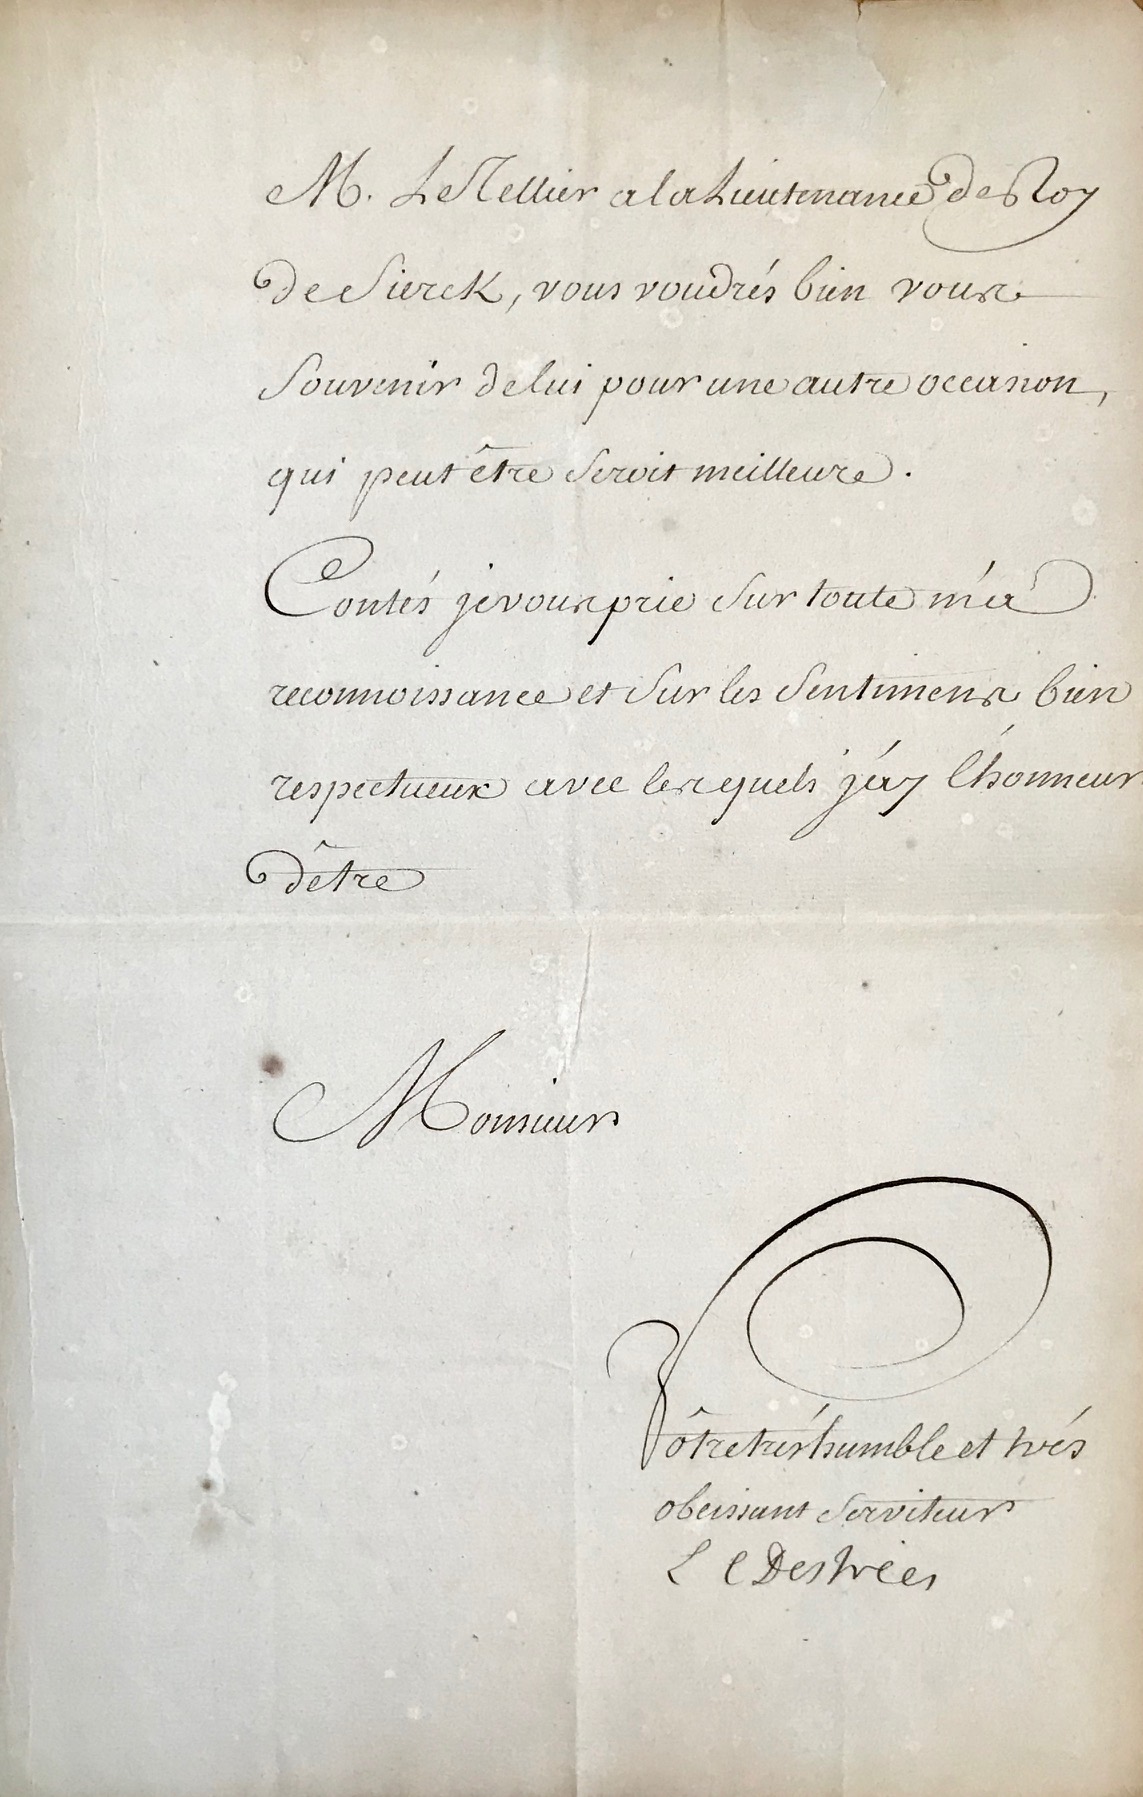 M. Le Tellier a la Lieutenance de Roy
de Sierck, vous voudrés bien vous
Souvenir de lui pour une autre occasion,
qui peut être Seroit meilleure.
Contés je vous prie Sur toute ma
reconnoissance et Sur les Sentimens bien
respectueux avec lesquels j'ay l'honneur
d'être
Monsieur
Vôtre trés humble et trés
obeissant Serviteur
L e Destrées